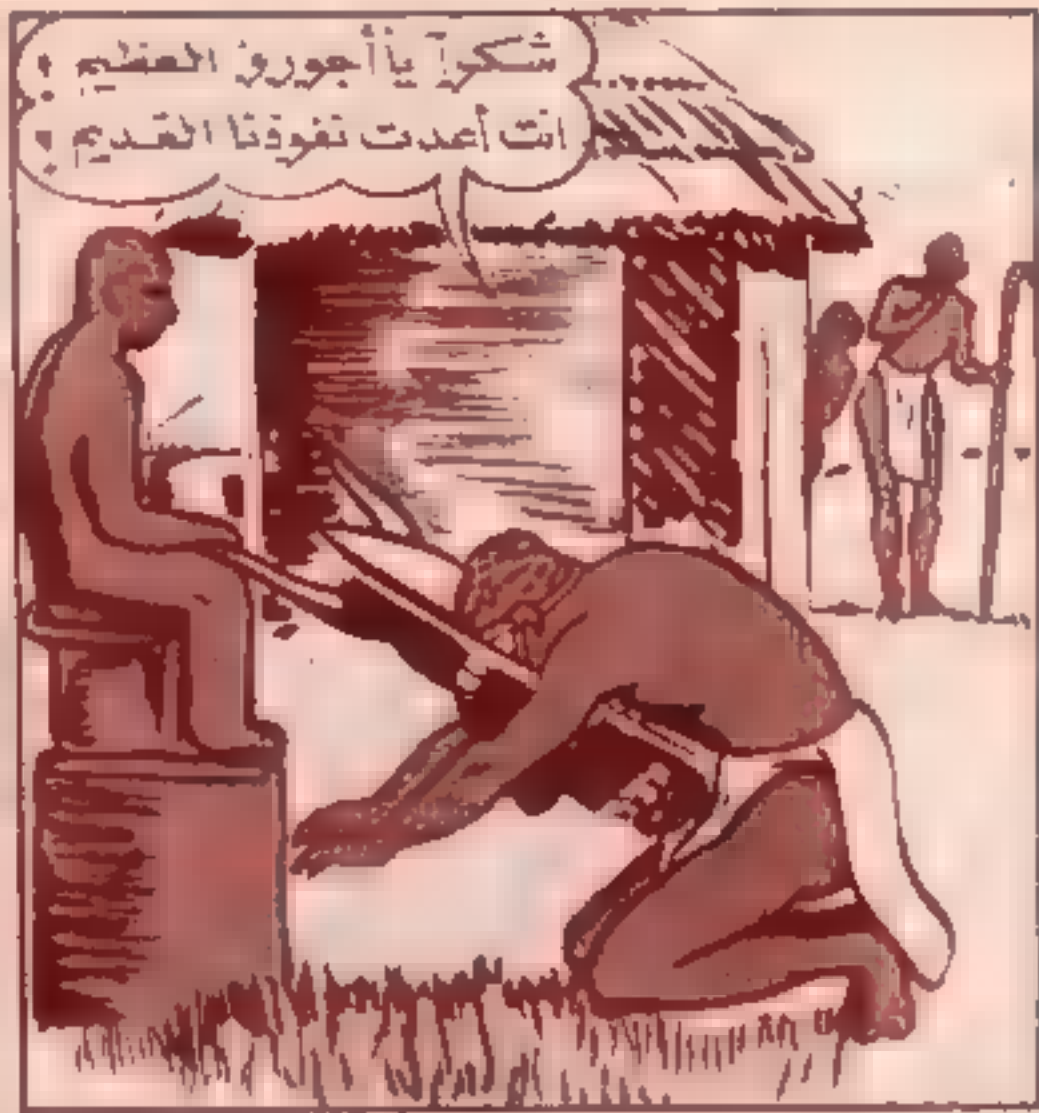 شكراً يا أجورو العظيم !
انت أعدت نفوذنا القديم !